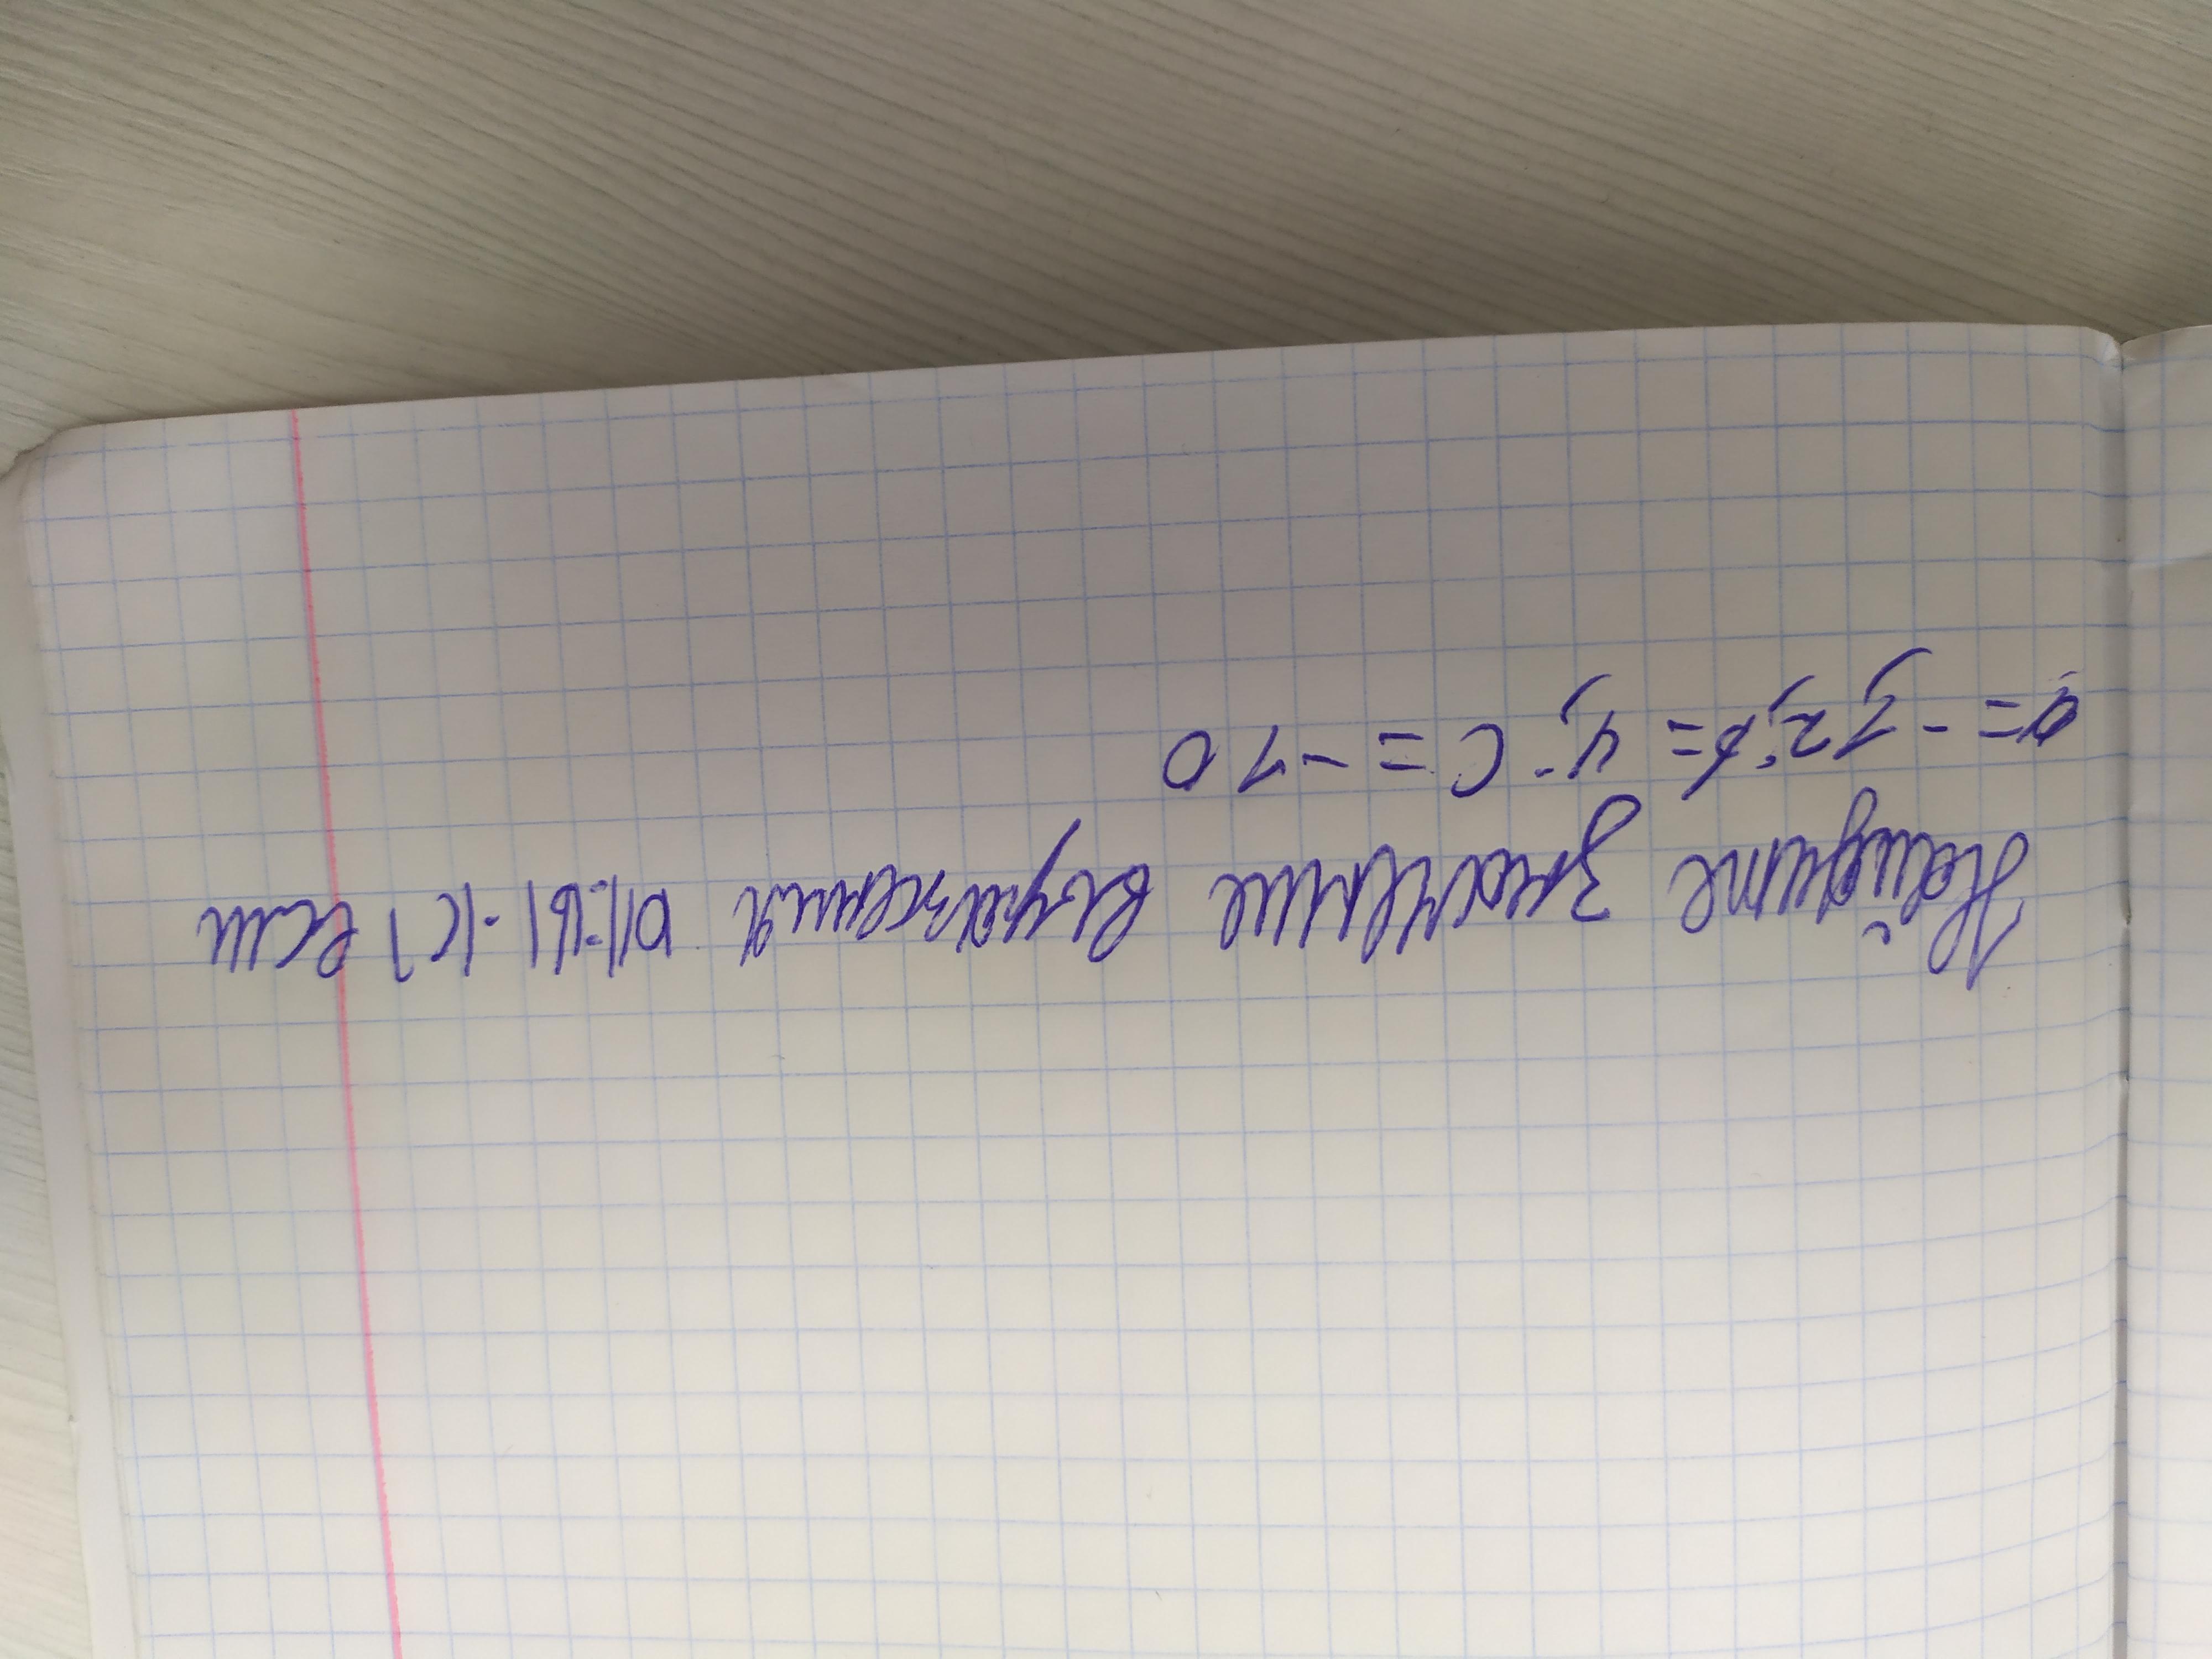 Найдите значение выражения |a|:|b|-|c| если
a=-12; b=4; c=-10